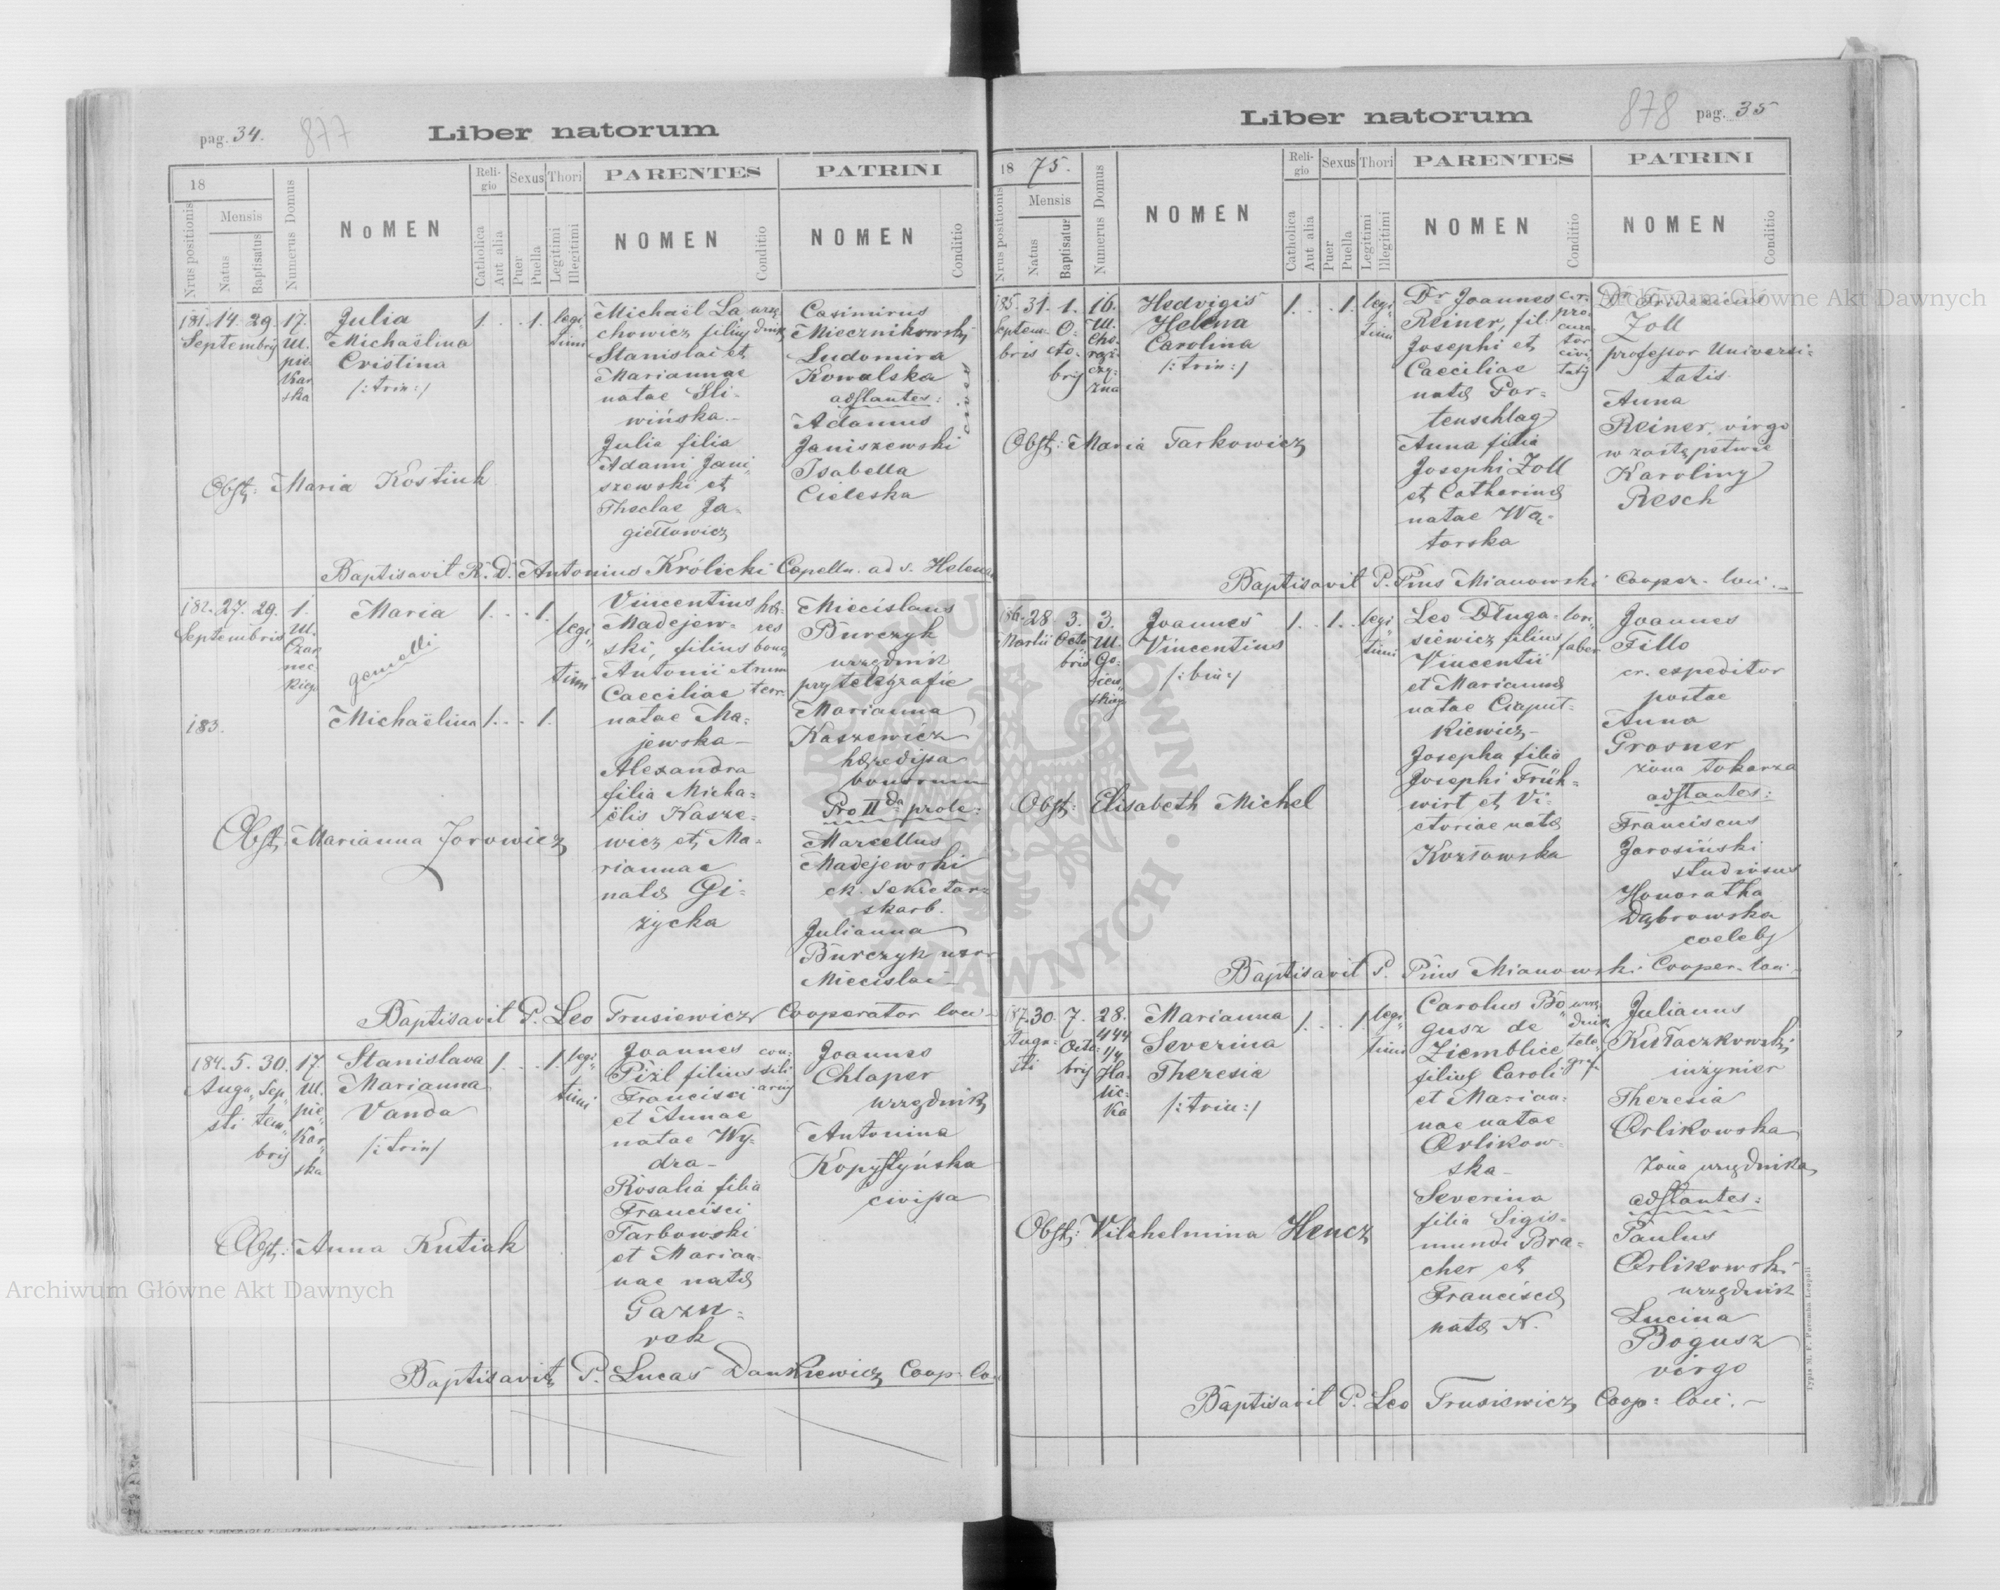 pag. 34.
877
Liber natorum
18
Nrus positionis
Mensis
Natus
Baptisatus
Numerus Domus
NoMEN
Reli-
gio
Catholica
Aut alia
Sexus
Puer
Puella
Thori
Legitimi
Illegitimi
PARENTES
NOMEN
Conditio
PATRINI
NOMEN
Conditio
181. 14. 29. 17.
Septembris
Ul.
pie
kar
ska
Julia
Michaëlina
Cristina
/: trin :/
1 . . 1.
legi
timi
Michaël La
chowicz filius
Stanislai et
Mariannae
natae Sli-
wińska -
Julia filia
Adami Jani
szewski et
Theclae Ja-
giełłowicz
urzę
dnik
Casimirus
Miecznikowski
Ludomira
Kowalska
adstantes:
Adamus
Janiszewski
Isabella
Cieleska
Obst: Maria Kostiuk
Baptisavit R. D. Antonius Królicki Capelln. ad s. Helenam
182. 27. 29. 1.
Septembris
Ul.
Czar
nec
kiego
Maria
gemelli
1. . . 1.
legi
timi
183.
Michaëlina 1. . . 1.
Vincentius
Madejew-
ski, filius
Antonii et
Caeciliae
natae Ma-
jewska -
Alexandra
filia Micha-
ëlis Kasze-
wicz et Ma-
riannae
natae Gi-
życka
hae
res
bono
rum
terr.
Miecislaus
Burczyk
urzędnik
przy telegrafie
Marianna
Kaszewicz
haeredissa
bonorum
Pro II da prole:
Marcellus
Madejewski
ck. sekretarz
skarb.
Julianna
Burczyk uxor
Miecislai -
Obst: Marianna Jorowicz
Baptisavit P. Leo Trusiewicz Cooperator loci -
184. 5. 30. 17.
Augu
sti
Sep
tem
bris
Ul.
pie
kar
ska
Stanislava
Marianna
Vanda
/: trin :/
1 . . 1.
legi
timi
Joannes
Pizl filius
Francisci
et Annae
natae Wy-
dra -
Rosalia filia
Francisci
Tarbowski
et Marian-
nae natae
Gazu-
rek
con-
sili
arius
Joannes
Chlaper
urzędnik
Antonina
Kopystyńska
civissa
Obst: Anna Kutiak
Baptisavit P. Lucas Dankiewicz Coop. loci
878
pag. 35
Liber natorum
18 75.
Nrus positionis
Mensis
Natus
Baptisatus
Numerus Domus
NOMEN
Reli-
gio
Catholica
Aut alia
Sexus
Puer
Puella
Thori
Legitimi
Illegitimi
PARENTES
NOMEN
Conditio
PATRINI
NOMEN
Conditio
185. 31. 1. 16.
Septem-
bris
Octo-
bris
Ul.
Cho-
rąż-
czy-
zna
Hedvigis
Helena
Carolina
/: trin :/
1. . . 1.
legi
timi
Dr Joannes
Reiner, fil.
Josephi et
Caeciliae
natae Por-
tenschlag
Anna filia
Josephi Zoll
et Catharinae
natae Wą-
torska
c.r.
pro-
cura-
tor
civi-
tatis
Dr Fridericus
Zoll
professor Universi-
tatis
Anna
Reiner, virgo
w zastępstwie
Karoliny
Resch
Obst: Maria Tarkowicz
Baptisavit P. Pius Mianowski Cooper. loci. -
186. 28. 3. 3.
Martii
Octo
bris
Ul.
Go-
siew-
skiego
Joannes
Vincentius
/: bin :/
1. . 1. .
legi
timi
Leo Długo-
siewicz filius
Vincentii
et Mariannae
natae Ciaput-
kiewicz -
Josepha filia
Josephi Früh-
wirt et Vi-
ctoriae natae
Kozłowska
lori-
faber
Joannes
Fillo
cr. expeditor
postae
Anna
Grosner
żona tokarza
adstantes:
Franciscus
Jarosiński
studiosus
Honoratha
Dąbrowska
coelebs
Obst: Elisabeth Michel
Baptisavit P. Pius Mianowski Cooper. loci
187. 30. 7. 28.
Augu-
sti
Octo
bris
444
1/4
Ha-
lic-
ka
Marianna
Severina
Theresia
/: trin :/
1. . . 1.
legi
timi
Carolus Bo
gusz de
Ziemblice
filius Caroli
et Marian-
nae natae
Orlikow-
ska -
Severina
filia Sigis-
mundi Bra-
cher et
Franciscae
natae N.
urzę
dnik
tele-
graf.
Julianus
Kułaczkowski
inżynier
Theresia
Orlikowska
żona urzędnika
adstantes:
Paulus
Orlikowski
urzędnik
Lucina
Bogusz
virgo
Obst: Vilehelmina Hencz
Baptisavit P. Leo Trusiewicz Coop: loci. -
Typis M. F. Poremba Leopoli
Archiwum Główne Akt Dawnych
Archiwum Główne Akt Dawnych